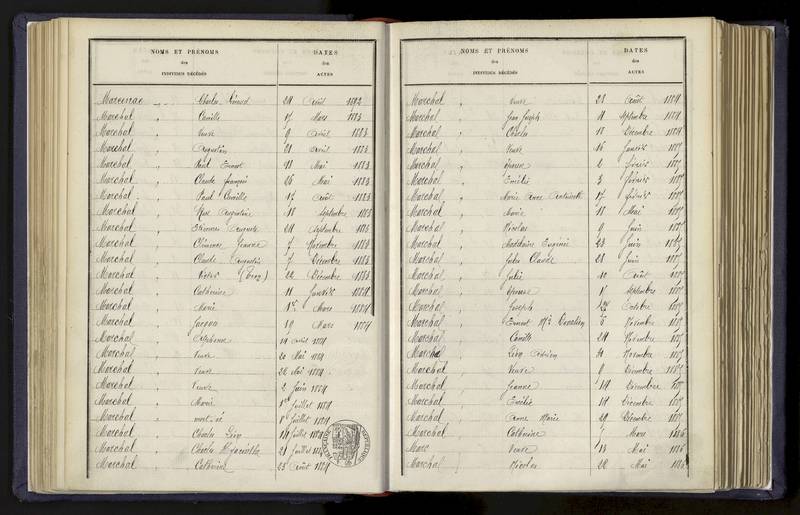 NOMS ET PRÉNOMS DATES
des des
INDIVIDUS DÉCÉDÉS ACTES
Charles 24 Août 1892
Marchal " Camille 17 Mars 1883
Marchal " Veuve 9 Avril 1883
Marchal " Augustin 21 Avril 1883
Marchal " Paul Ernest Mai 1883
Marchal " Claude François 26 Mai 1883
Marchal " Paul Camille 17 Août 1883
Marchal " Rose Augustine 18 Septembre 1883
Marchal " Etienne Auguste 24 Septembre 1883
Marchal " Clémence 7 Novembre 1883
Marchal " Claude Augustin 7 Décembre 1883
Marchal " Victor 22 Décembre 1883
Marchal " Catherine 11 Janvier 1884
Marchal " Marie 1er Mars 1884
Marchal " Jacques 19 Mars 1884
Marchal " Alphonse 14 Avril 1884
Marchal " Veuve 20 Mai 1884
Marchal " Veuve 22 Mai 1884
Marchal " Veuve 2 Juin 1884
Marchal " Marie 1er Juillet 1884
Marchal " mort-né Juillet 1884
Marchal " Charles Léon 14 Juillet 1884
Marchal " Charles Hyacinthe 21 Juillet 1884
Marchal " Catherine 23 Août 1884
NOMS ET PRÉNOMS DATES
des des
INDIVIDUS DÉCÉDÉS ACTES
Marchal " Veuve 28 Août 1884
Marchal " Jean Joseph 11 Septembre 1884
Marchal " Charles 18 Décembre 1884
Marchal " Veuve 16 Janvier 1885
Marchal " épouse 2 Février 1885
Marchal " Emélie 3 Février 1885
Marchal " Marie Anne Antoinette 17 Février 1885
Marchal " Marie 18 Mai 1885
Marchal " Nicolas 9 Juin 1885
Marchal " Madeleine Eugénie 23 Juin 1885
Marchal " Jules Claude 28 Juin 1885
Marchal " Julie 10 Août 1885
Marchal " épouse Septembre 1885
Marchal " Joseph Octobre 1885
Marchal " Ernest 5 Novembre 1885
Marchal " Camille 24 Novembre 1885
Marchal " Léon Novembre 1885
Marchal " Veuve 9 Décembre 1885
Marchal " Jeanne 14 Décembre 1885
Marchal " Emélie 14 Décembre 1885
Marchal " Anne Marie 29 Décembre 1885
Marchal " Catherine Mars 1886
Marc " Veuve 13 Mai 1886
Marchal " Nicolas 22 Mai 1886